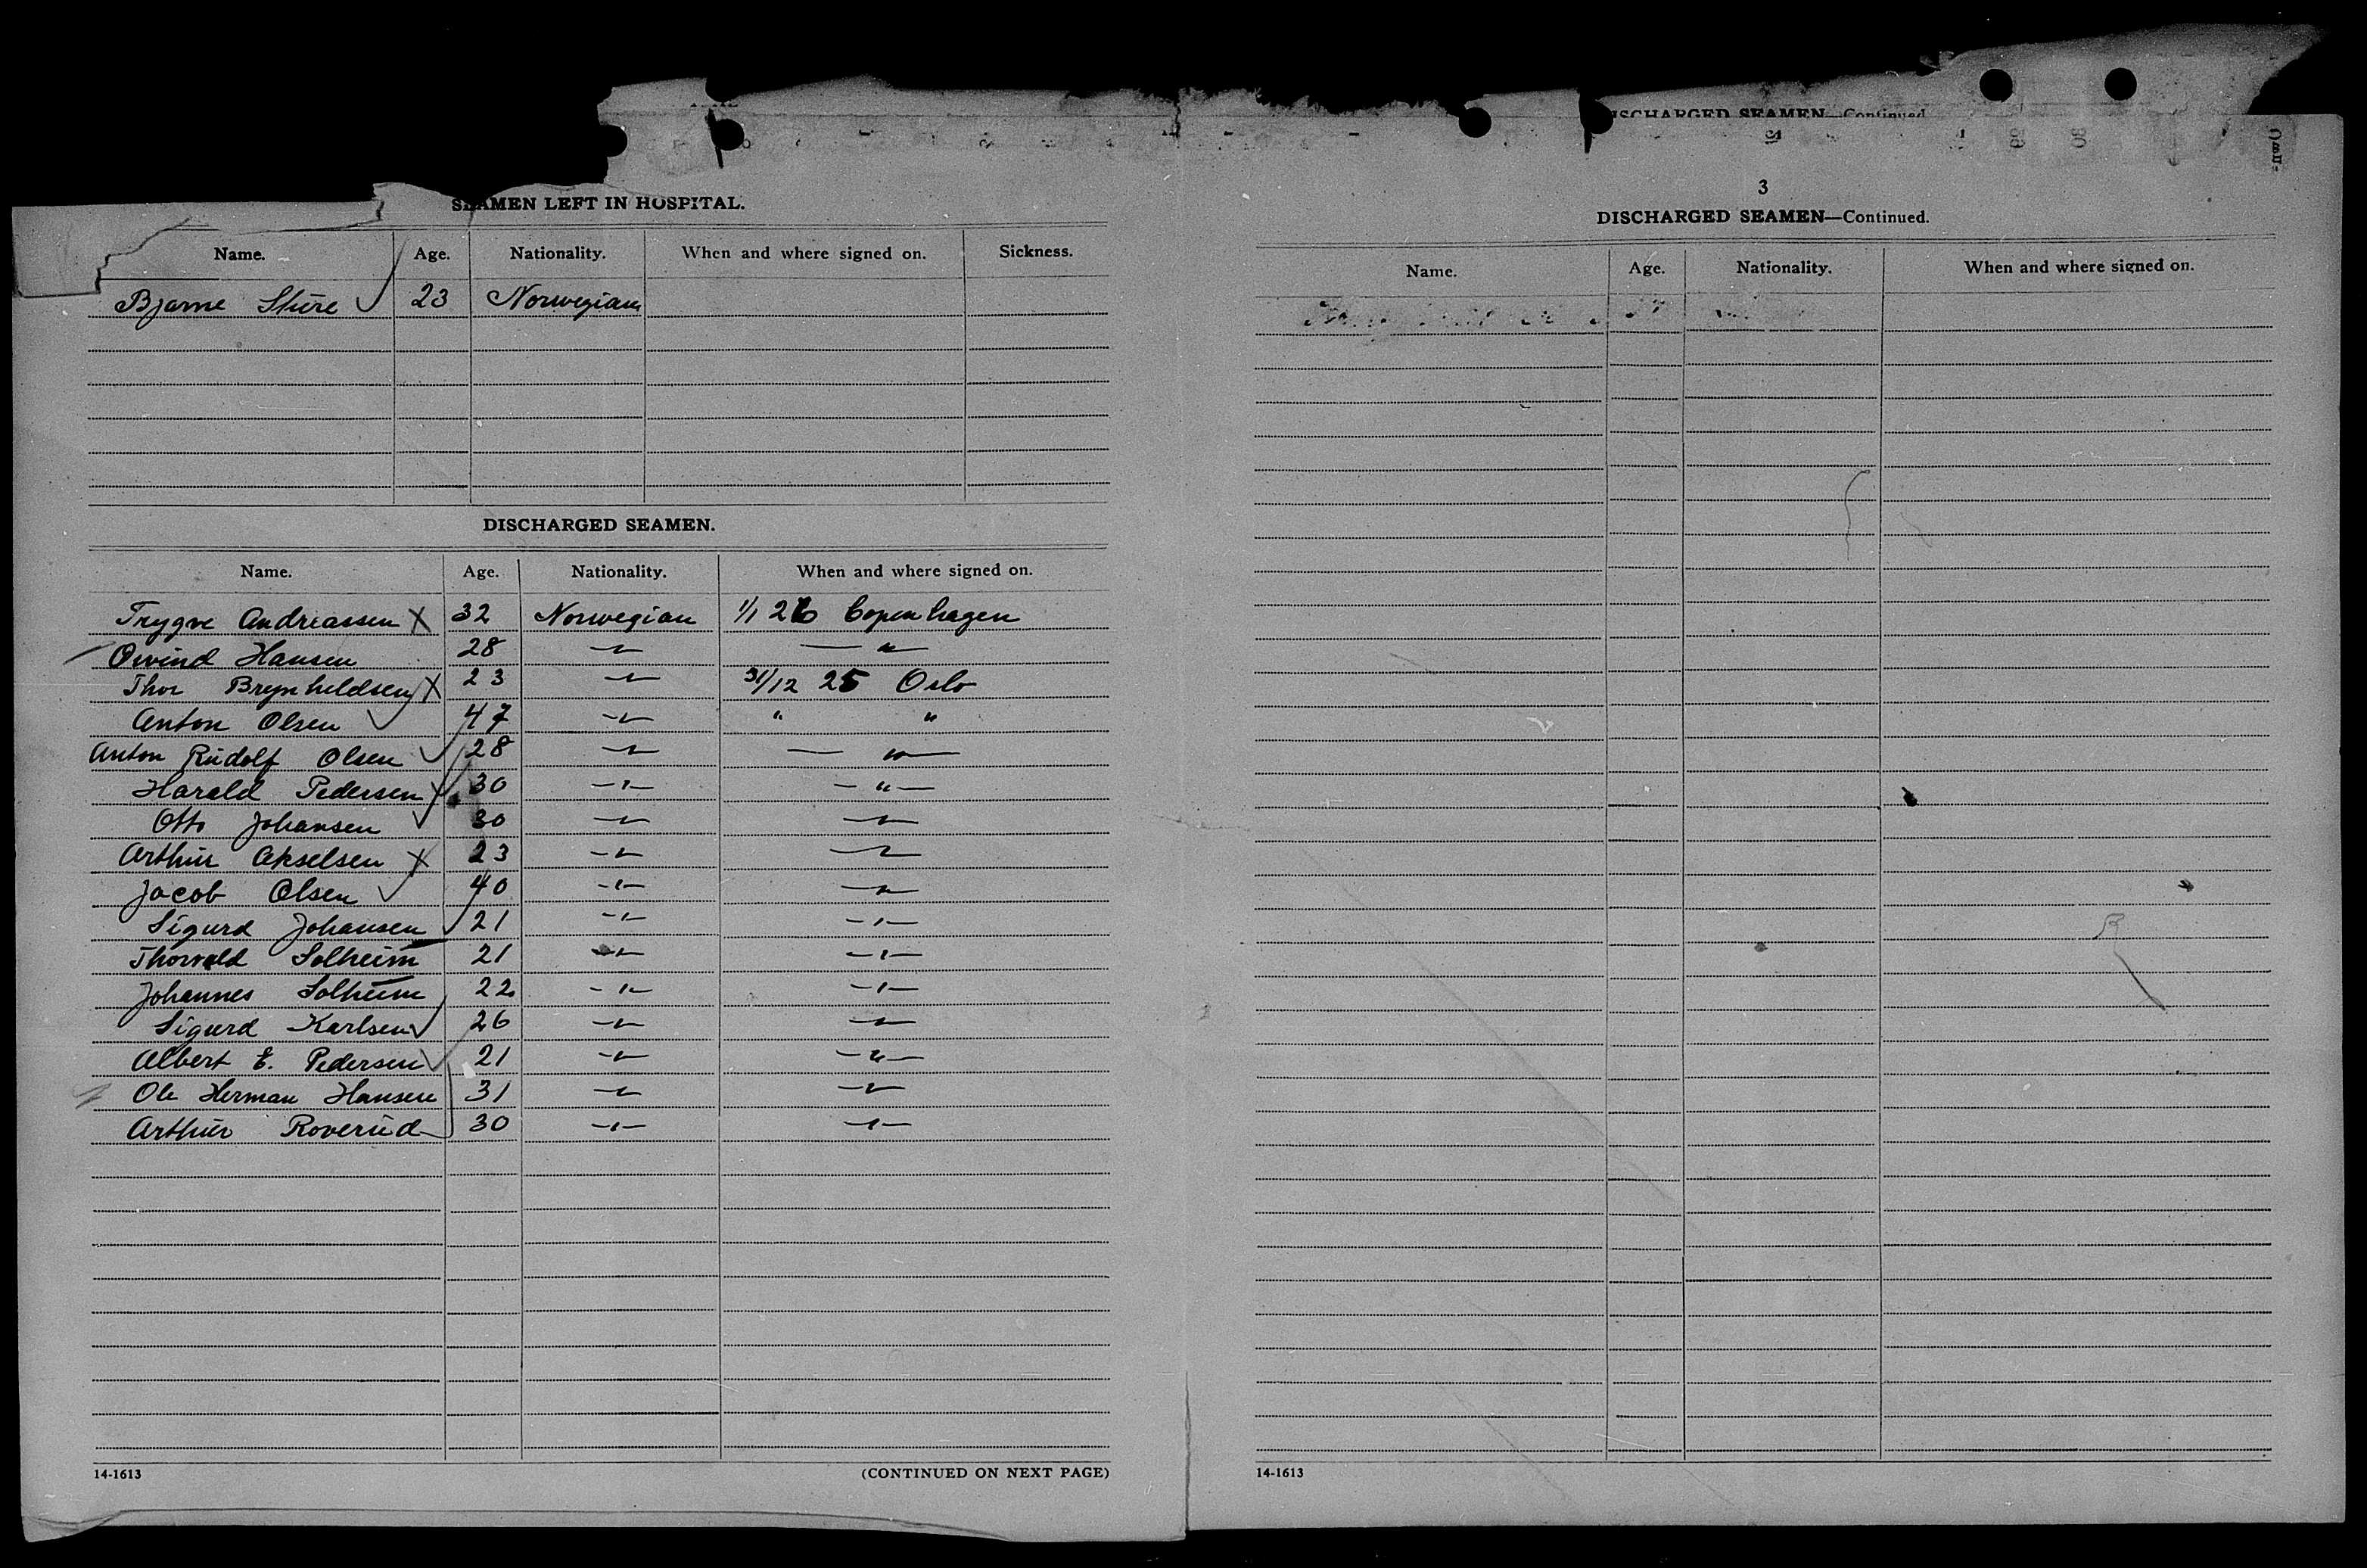 SEAMEN LEFT IN HOSPITAL.
Name. Age. Nationality. When and where signed on. Sickness.
Bjarne Sture 23 Norwegian
DISCHARGED SEAMEN.
Name. Age. Nationality. When and where signed on.
Trygve Andreassen X 32 Norwegian 1/1 26 Copenhagen
Oivind Hansen 28 —"— — "—
Thor Brynhildsen X 23 —"— 31/12 25 Oslo
Anton Olsen ✓ 47 —"— " "
Anton Rudolf Olsen ✓ 28 —"— — "—
Harald Pedersen ✓ 30 —"— —"—
Otto Johansen ✓ 30 —"— —"—
Arthur Akselsen X 23 —"— —"—
Jacob Olsen ✓ 40 —"— —"—
Sigurd Johansen ✓ 21 —"— —"—
Thorvald Solheim 21 —"— —"—
Johannes Solheim 22 —"— —"—
Sigurd Karlsen ✓ 26 —"— —"—
Albert E. Pedersen ✓ 21 —"— —"—
Ole Herman Hansen 31 —"— —"—
Arthur Roverud 30 —"— —"—
14-1613 (CONTINUED ON NEXT PAGE)
DISCHARGED SEAMEN—Continued
3
DISCHARGED SEAMEN—Continued.
Name. Age. Nationality. When and where signed on.
14-1613